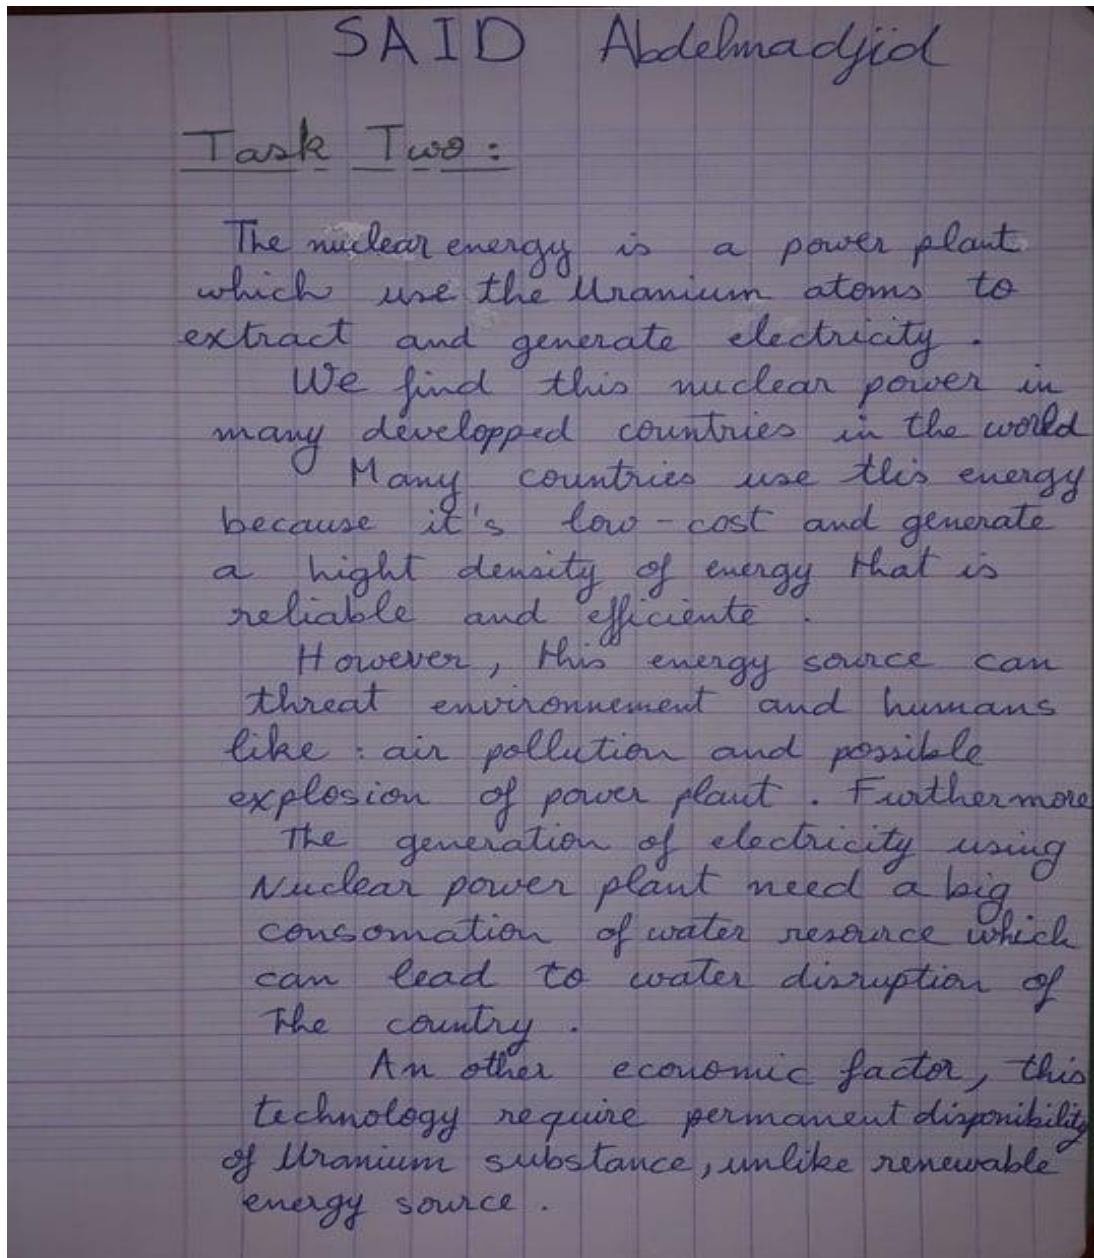 SAID Abdelmadjid
Task Two :
The nuclear energy is a power plant
which use the Uranium atoms to
extract and generate electricity .
We find this nuclear power in
many developped countries in the world
Many countries use this energy
because it's low-cost and generate
a hight density of energy that is
reliable and efficiente .
However, this energy source can
threat environnement and humans
like : air pollution and possible
explosion of power plant . Furthermore
The generation of electricity using
Nuclear power plant need a big
consomation of water resource which
can lead to water disruption of
the country .
An other economic factor, this
technology require permanent disponibility
of Uranium substance, unlike renewable
energy source .